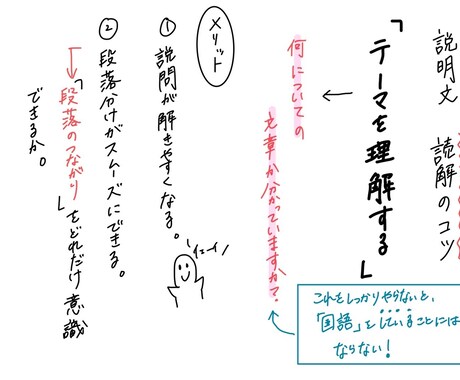 説明文 読解のコツ
「テーマを理解する」
何についての
文章か分かっていますか?
これをしっかりやらないと、
「国語」をしていることには
ならない!
メリット
① 説問が解きやすくなる。
② 段落分けがスムーズにできる。
「段落のつながり」をどれだけ意識
できるか。
イエーイ!